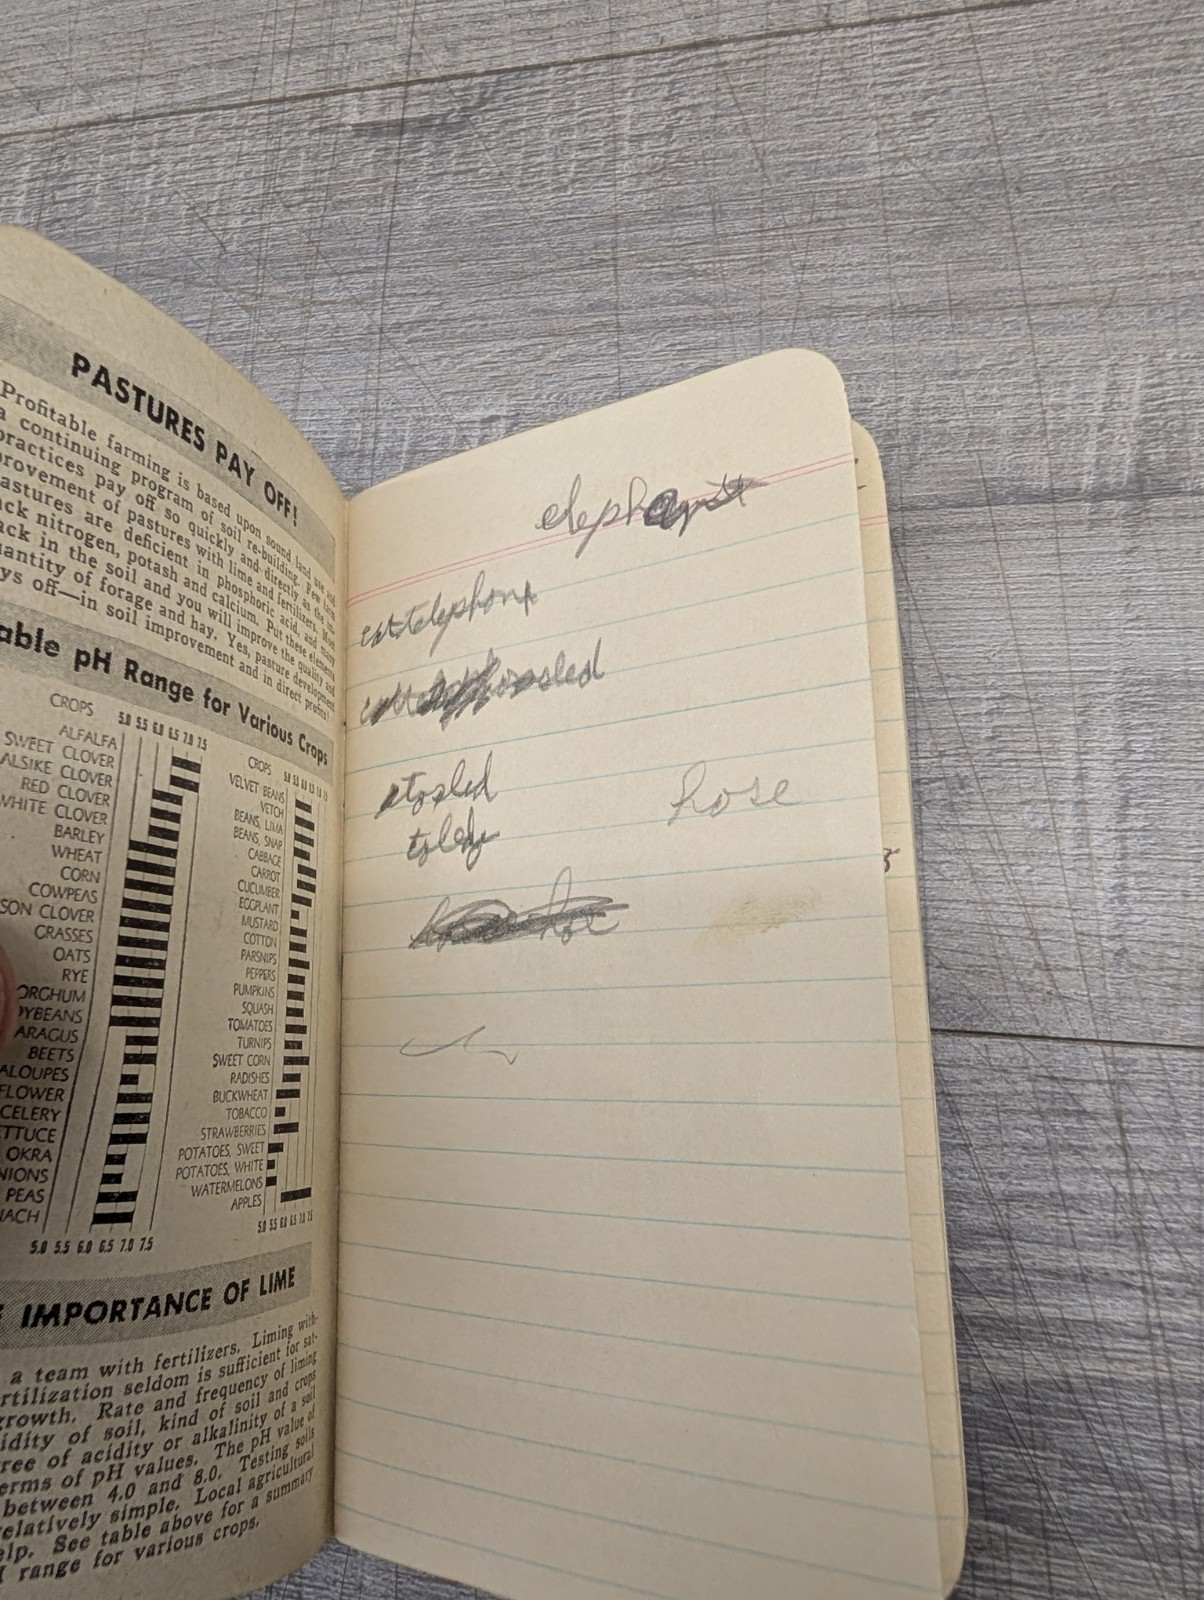 PASTURES PAY OFF!
Profitable farming is based upon sound land use and
a continuing program of soil re-building. Few farm
practices pay off so quickly and directly as the im-
provement of pastures with lime and fertilizers. Most
pastures are deficient in phosphoric acid, and many
lack nitrogen, potash and calcium. Put these elements
back in the soil and you will improve the quality and
quantity of forage and hay. Yes, pasture development
pays off—in soil improvement and in direct profits!
able pH Range for Various Crops
CROPS 5.0 5.5 6.0 6.5 7.0 7.5
ALFALFA
SWEET CLOVER
ALSIKE CLOVER
RED CLOVER
WHITE CLOVER
BARLEY
WHEAT
CORN
COWPEAS
SON CLOVER
GRASSES
OATS
RYE
ORGHUM
OYBEANS
ARAGUS
BEETS
ALOUPES
FLOWER
CELERY
ETTUCE
OKRA
NIONS
PEAS
NACH
5.0 5.5 6.0 6.5 7.0 7.5
CROPS 5.0 5.5 6.0 6.5 7.0 7.5
VELVET BEANS
VETCH
BEANS, LIMA
BEANS, SNAP
CABBAGE
CARROT
CUCUMBER
EGGPLANT
MUSTARD
COTTON
PARSNIPS
PEPPERS
PUMPKINS
SQUASH
TOMATOES
TURNIPS
SWEET CORN
RADISHES
BUCKWHEAT
TOBACCO
STRAWBERRIES
POTATOES, SWEET
POTATOES, WHITE
WATERMELONS
APPLES
5.0 5.5 6.0 6.5 7.0 7.5
IMPORTANCE OF LIME
a team with fertilizers. Liming with-
ertilization seldom is sufficient for sat-
growth. Rate and frequency of liming
idity of soil, kind of soil and crops
ree of acidity or alkalinity of a soil
erms of pH values. The pH value of
between 4.0 and 8.0. Testing soils
relatively simple. Local agricultural
elp. See table above for a summary
range for various crops.
elephant
hose